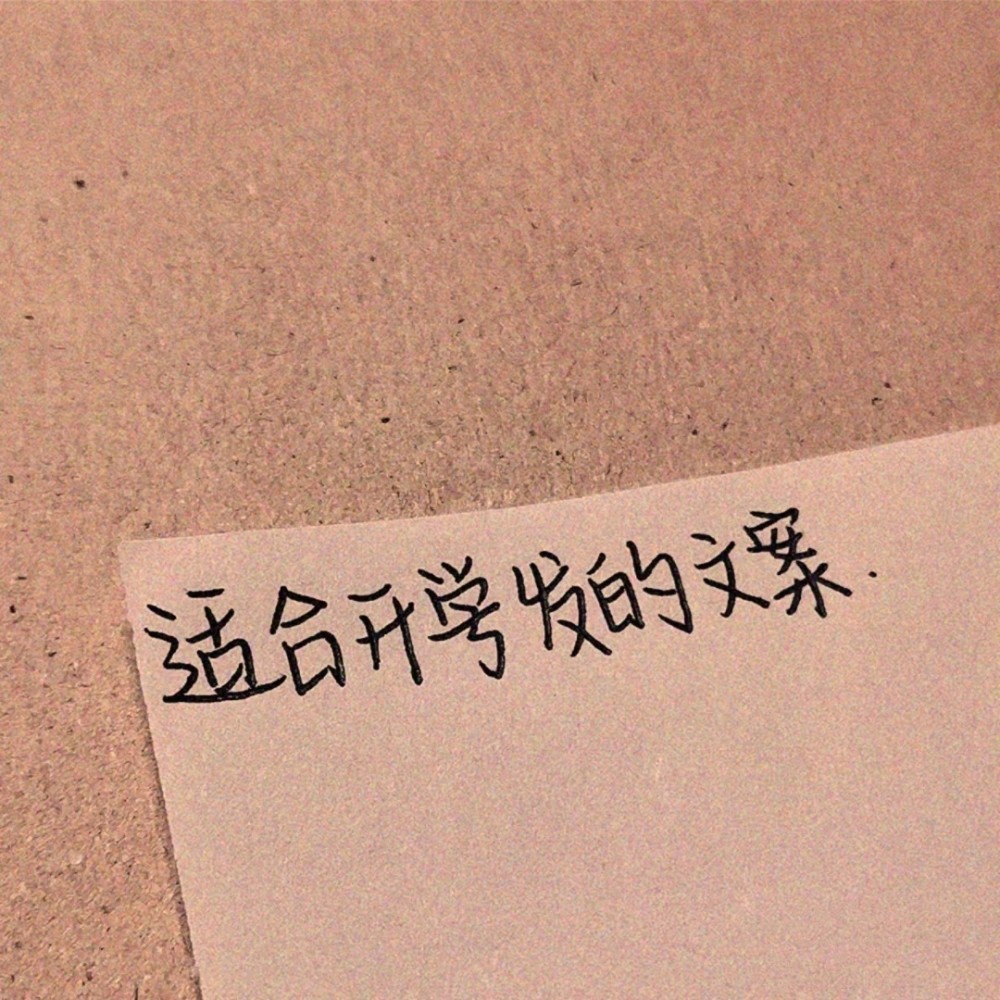 适合开学发的文案.